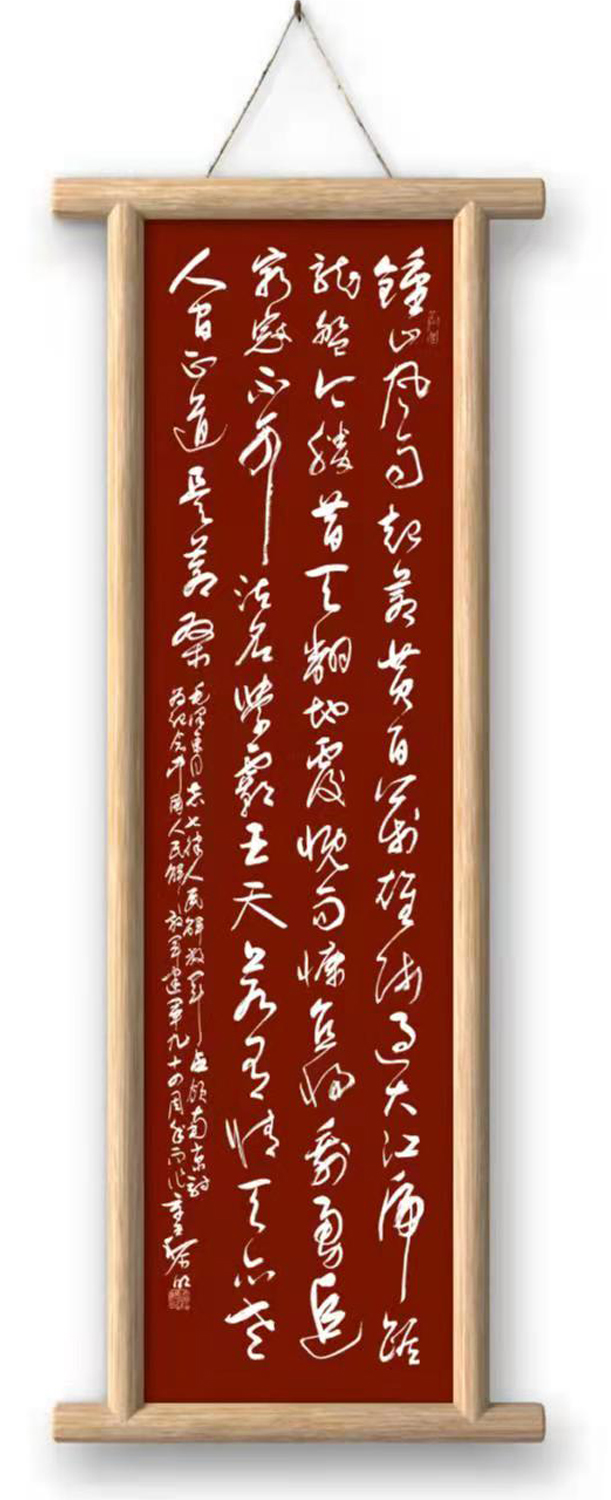 鐘山風雨起蒼黃百萬雄師過大江虎踞
龍盤今勝昔天翻地覆慨而慷宜將剩勇追
窮寇不可沽名學霸王天若有情天亦老
人間正道是蒼桑
毛澤東同志七律人民解放軍占領南京詩
為紀念中國人民解放軍建軍九十四周年而作